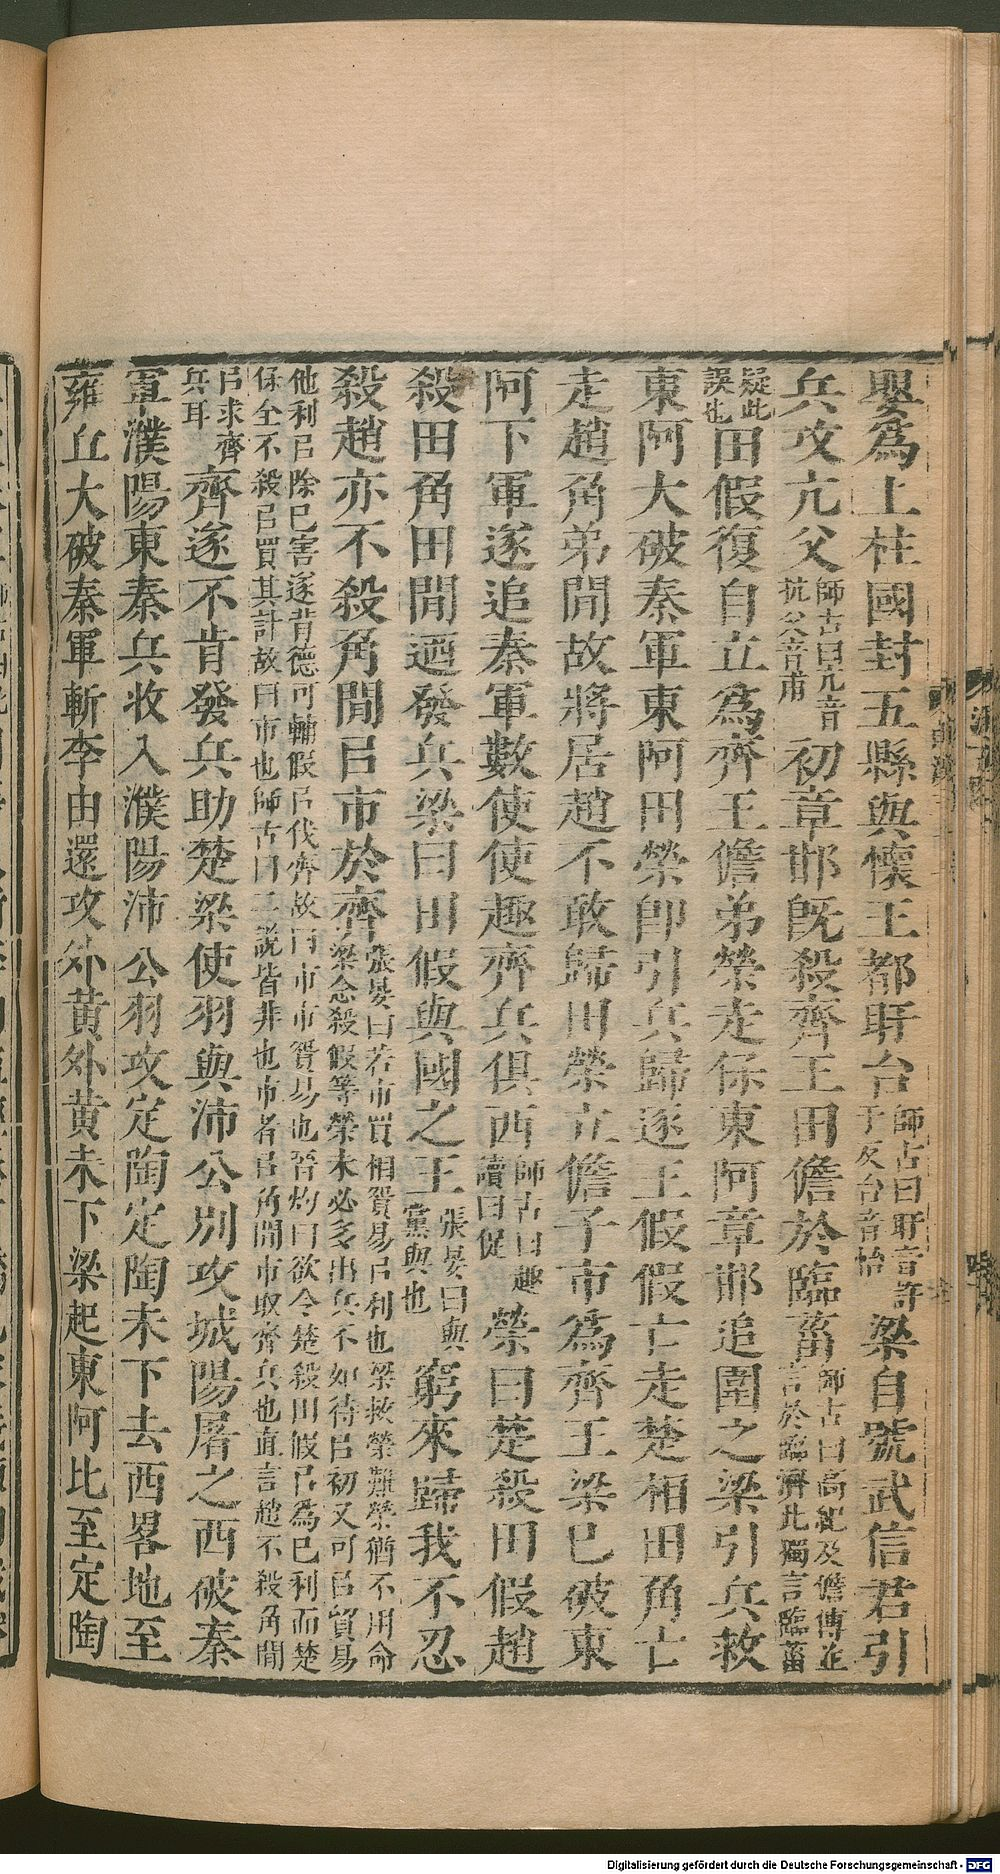 嬰爲上柱國封五縣與懷王都盱台師古曰盱音許于反台音怡梁自號武信君引
兵攻亢父師古曰亢音抗父音甫初章邯既殺齊王田儋於臨菑師古曰高紀及儋傳並言於臨濟此獨言臨菑
疑此誤也田假復自立爲齊王儋弟榮走保東阿章邯追圍之梁引兵救
東阿大破秦軍東阿田榮卽引兵歸逐王假假亡走楚相田角亡
走趙角弟閒故將居趙不敢歸田榮立儋子市爲齊王梁已破東
阿下軍遂追秦軍數使使趣齊兵俱西師古曰趣讀曰促榮曰楚殺田假趙
殺田角田閒迺發兵梁曰田假與國之王張晏曰與黨與也窮來歸我不忍
殺趙亦不殺角閒㠯市於齊張晏曰若市買相貿易㠯利也梁救榮難榮猶不用命梁念殺假等榮未必多出兵不如待㠯初又可㠯貿易
他利㠯除已害遂背德可輔假㠯伐齊故曰市市貿易也晉灼曰欲令楚殺田假㠯爲已利而楚保全不殺㠯買其計故曰市也師古曰二說皆非也市者㠯角閒市取齊兵也直言趙不殺角閒
㠯求齊兵耳齊遂不肯發兵助楚梁使羽與沛公別攻城陽屠之西破秦
軍濮陽東秦兵收入濮陽沛公羽攻定陶定陶未下去西畧地至
雍丘大破秦軍斬李由還攻外黃外黃未下梁起東阿比至定陶
Digitalisierung gefördert durch die Deutsche Forschungsgemeinschaft - DFG